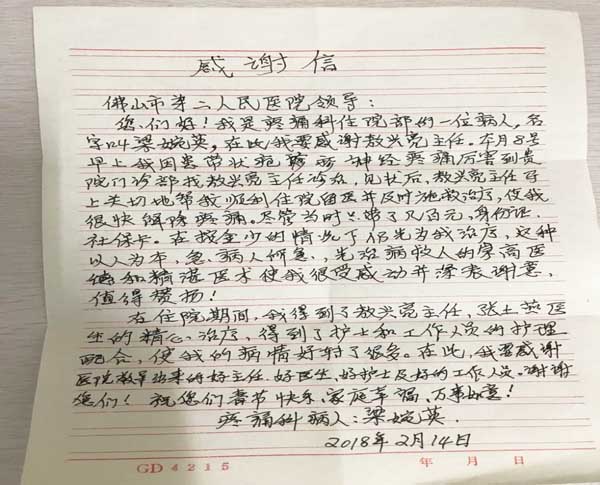 感谢信
佛山市第二人民医院领导：
您们好！我是疼痛科住院部的一位病人，名
字叫梁婉英，在此我要感谢敖兴亮主任。本月8号
早上我因患带状疱疹 神经疼痛厉害到贵
院门诊部找敖兴亮主任诊治，见状后，敖兴亮主任马
上关切地帮我顺利住院留医并及时地救治疗，使我
很快解除疼痛。尽管当时只带了几百元，身份证，
社保卡。在按金少的情况下仍先为我治疗，这种
以人为本，急病人所急，先治病救人的崇高医
德和精湛医术使我很受感动并深表谢意，
值得赞扬！
在住院期间，我得到了敖兴亮主任，张土英医
生的精心治疗，得到了护士和工作人员的护理
配合，使我的病情好转了很多。在此，我要感谢
医院教 出来的好主任、好医生、好护士及好的工作人员。谢谢
您们！祝您们春节快乐，家庭幸福，万事如意！
疼痛科病人：梁婉英.
2018年2月14日
GD4215 年 月 日